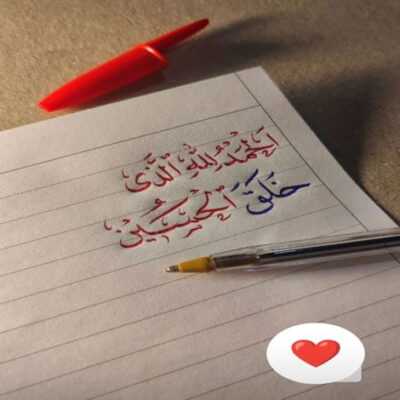 اَلحَمدُ لِلّٰهِ الَّذی
خَلَقَ الحُسَین